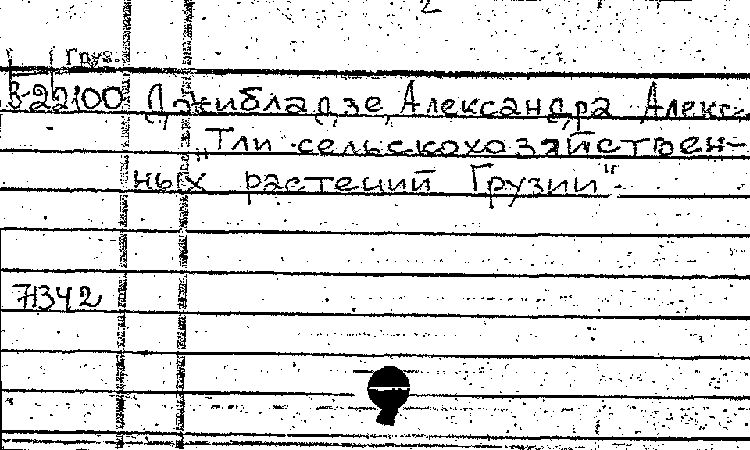 2
Груз.
В-22100 Джибладзе, Александра Алекс.
„Тли сельскохозяйствен-
ных растений Грузии".
71342